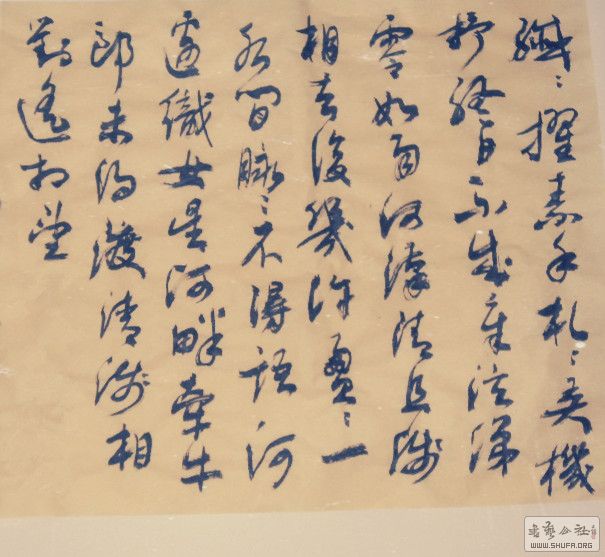 纖〻擢素手札〻弄機
杼終日不成章泣涕
零如雨河漢清且淺
相去復幾許盈〻一
水間脉〻不得語河
邊織女星河畔牽牛
郎未得渡清淺相
對遙相望
書藝公社
WWW.SHUFA.ORG